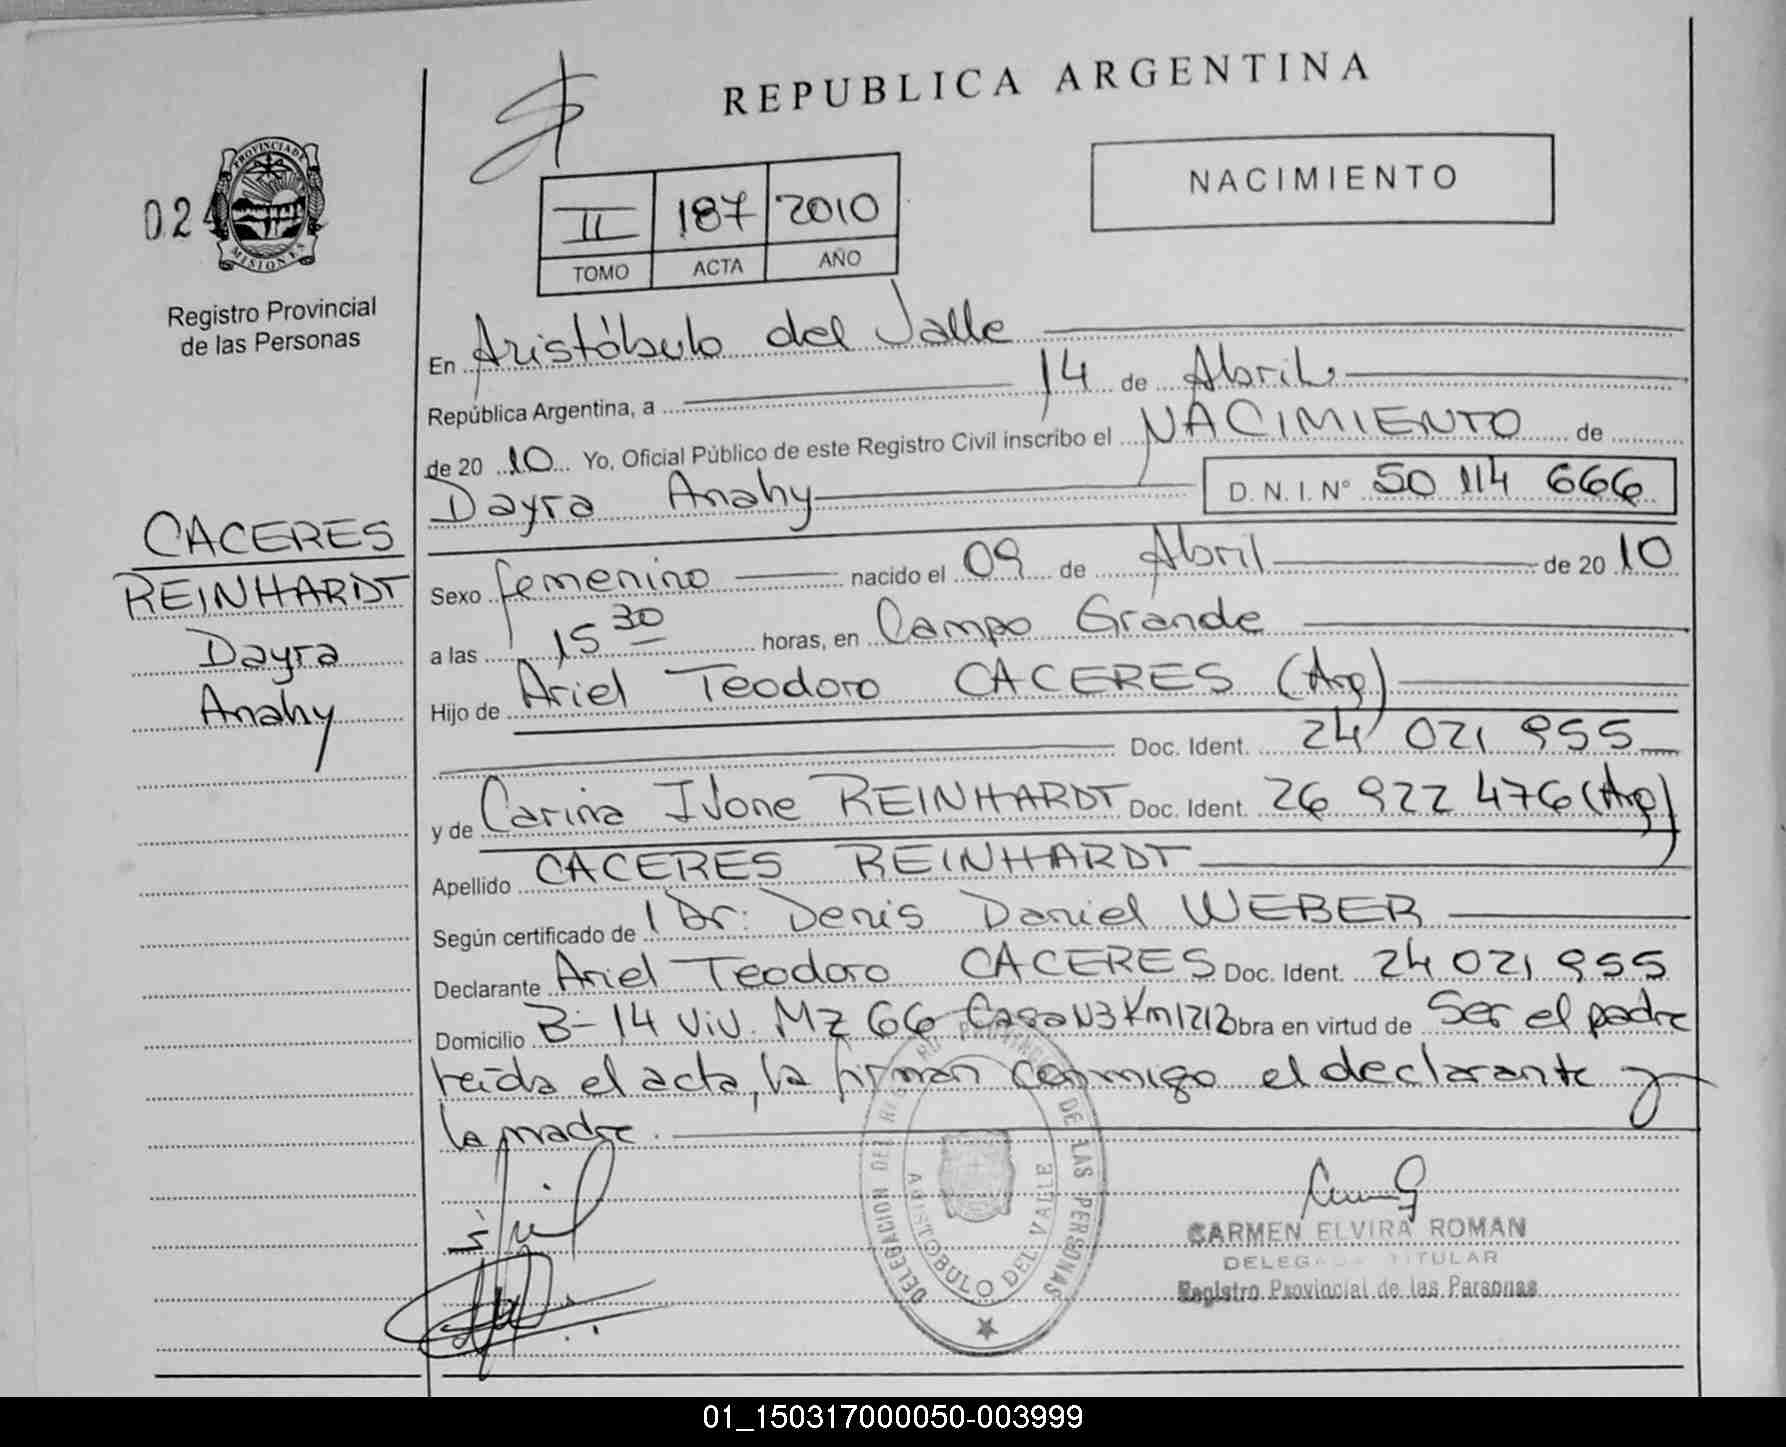 REPUBLICA ARGENTINA
NACIMIENTO
02
PROVINCIA DE
MISIONES
Registro Provincial
de las Personas
II 187 2010
TOMO ACTA AÑO
En Aristóbulo del Valle
República Argentina, a 14 de Abril
de 2010 Yo, Oficial Público de este Registro Civil inscribo el NACIMIENTO de
Dayra Anahy D.N.I.Nº 50 114 666
CACERES
REINHARDT
Dayra
Anahy
Sexo femenino nacido el 09 de Abril de 2010
a las 15 30 horas, en Campo Grande
Hijo de Ariel Teodoro CACERES (Arg)
Doc. Ident. 24 021 955
y de Carina Ivone REINHARDT Doc. Ident. 26 922 476 (Arg)
Apellido CACERES REINHARDT
Según certificado de 1 Dr: Denis Daniel WEBER
Declarante Ariel Teodoro CACERES Doc. Ident. 24 021 955
Domicilio B- 14 Viv. Mz 66 Casa N3 Km 1212 Obra en virtud de Ser el padre
leída el acta, la firman conmigo el declarante y
la madre.
DELEGACION DEL REGISTRO PROVINCIAL DE LAS PERSONAS
ARISTOBULO DEL VALLE
CARMEN ELVIRA ROMAN
TITULAR
Registro Provincial de las Personas
01_150317000050-003999